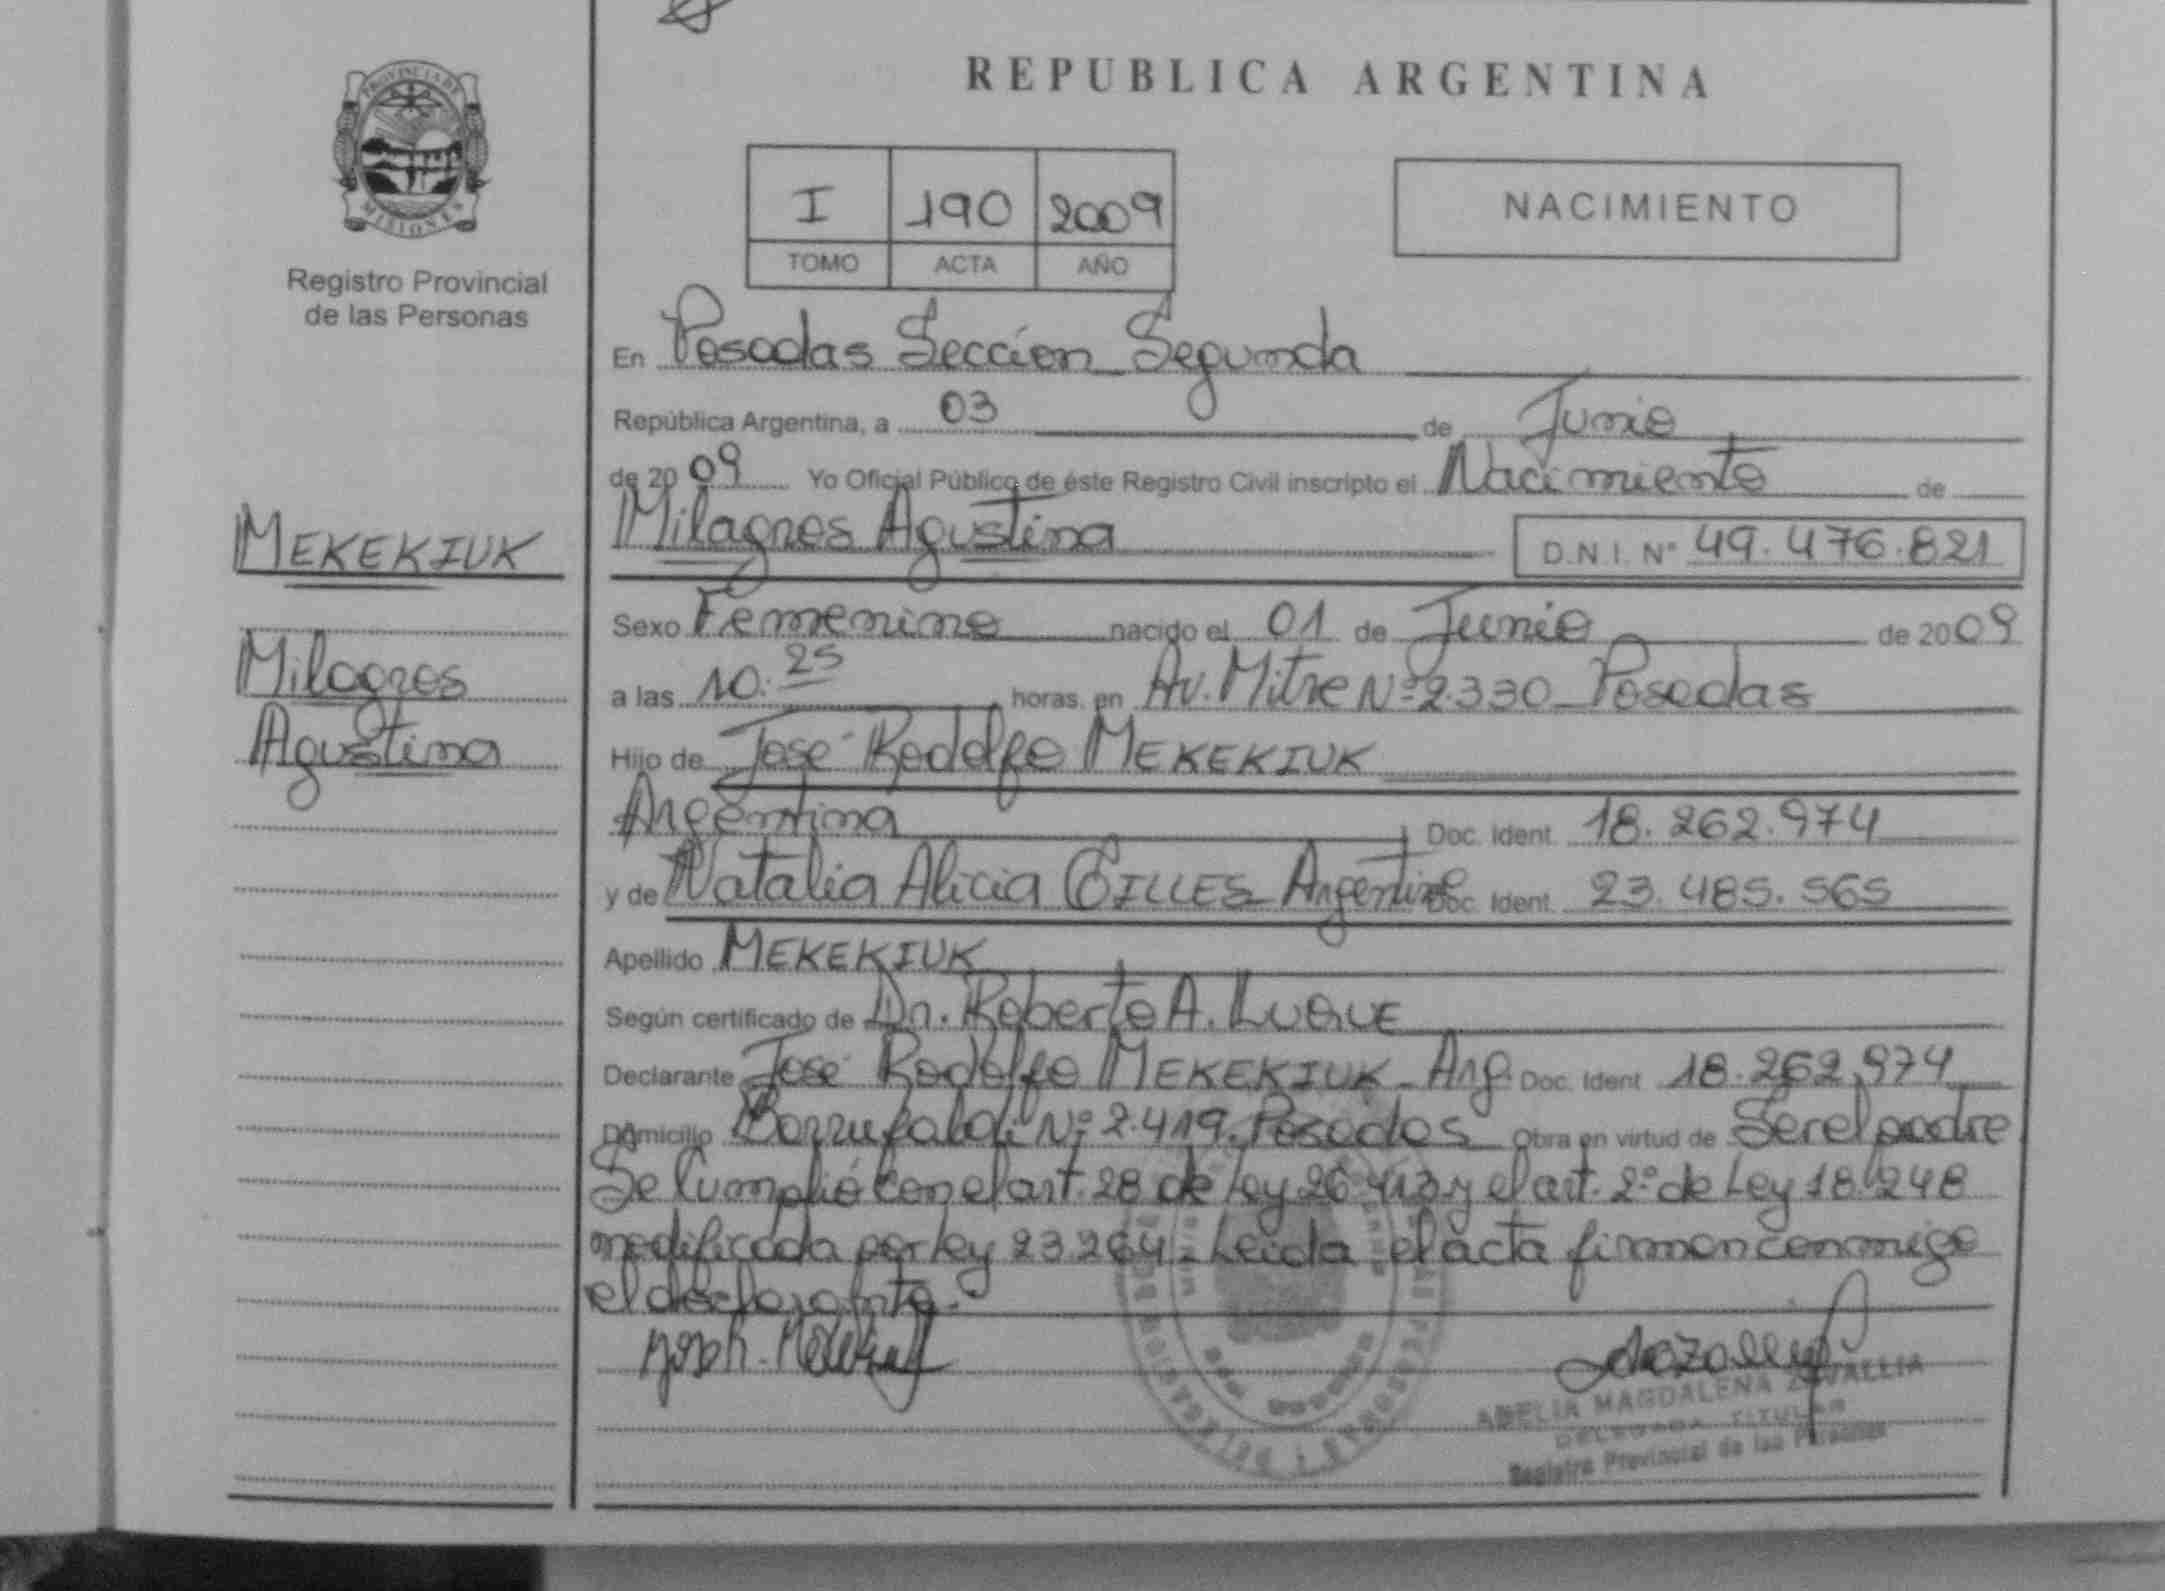 PROVINCIA DE
MISIONES
Registro Provincial
de las Personas
MEKEKIUK
Milagros
Agustina
REPUBLICA ARGENTINA
I 190 2009
TOMO ACTA AÑO
NACIMIENTO
En Posadas Sección Segunda
República Argentina, a 03 de Junio
de 2009 Yo Oficial Público de éste Registro Civil inscripto el Nacimiento de
Milagros Agustina D.N.I. Nº 49.476.821
Sexo Femenino nacido el 01 de Junio de 2009
a las 10:25 horas, en Av. Mitre Nº 2.330 _ Posadas
Hijo de José Rodolfo MEKEKIUK
Argentina Doc. Ident. 18.262.974
y de Natalia Alicia GILLES Argentina Doc. Ident. 23.485.565
Apellido MEKEKIUK
Según certificado de Dr. Roberto A. LUQUE
Declarante José Rodolfo MEKEKIUK - Arg. Doc. Ident 18.262.974
Domicilio Borrufaldi Nº 2.419. Posadas Obra en virtud de Ser el padre
Se Cumplió con el art. 28 de Ley 26.413 y el art. 2º de Ley 18.248
modificada por ley 23.264 - Leida el acta firman conmigo
el declarante.
AMELIA MAGDALENA ZAVALLIA
DELEGADA TITULAR
Registro Provincial de las Personas